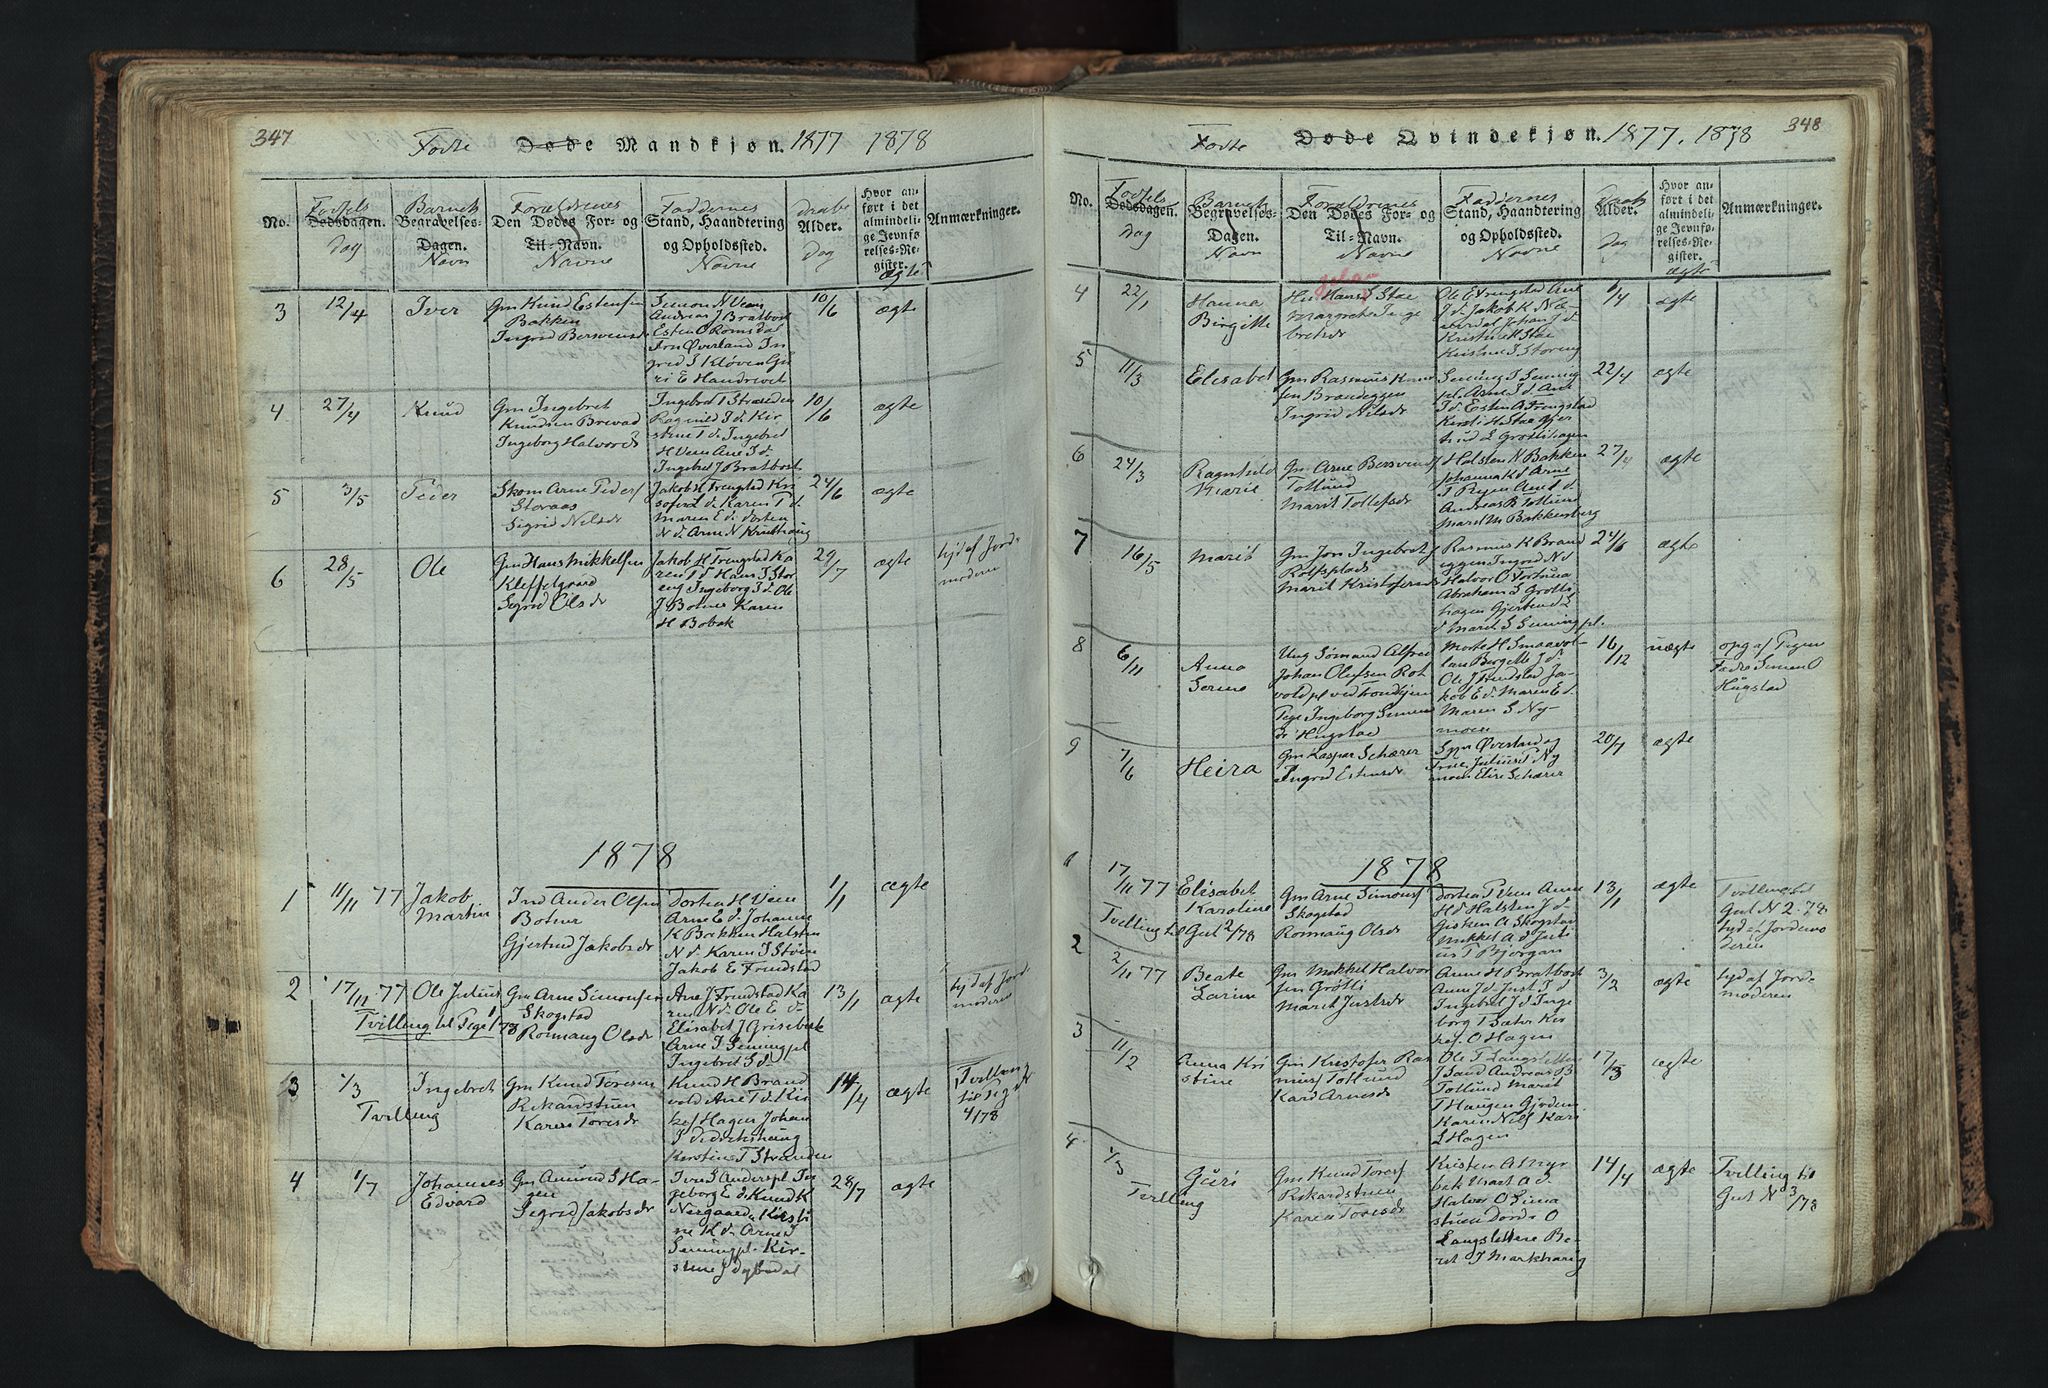 347
Fødte Døde Mandkjøn. 1877 1878
No.
Fødsels
Dødsdagen.
Dag
Barnets
Begravelses-
Dagen.
Navn
Forældrenes
Den Dødes For- og
Til-Navn.
Navne
Faddernes
Stand, Haandtering
og Opholdssted.
Navne
Daabs
Alder.
Dag
Hvor an-
ført i det
almindeli-
ge Jevnfø-
relses-Re-
gister.
Anmærkninger.
3
12/4
Iver
Gm Knud Estensen
Bakken
Ingrid Bersvensd
Simon N Veen
Andreas J Bratbost
Esten O Romsdal
Jon Øverland In
grid S Kløven Gu
ri E Handrivet
10/6
ægte
4
27/4
Knud
Gm Ingebret
Knudsen Brevad
Ingeborg Halvorsd
Ingebret T Stranden
Ragnild J d. Kir
stine T d. Ingebret
H Veen Ane J d.
Ingebret J Bratbost
10/6
ægte
5
3/5
Peder
Skom Arne Peders
Storaas
Sigrid Nilsd
Jakob H Trengstad Kri
Karen T d.
Maren E d.
N d. Arne N
24/6
ægte
6
28/5
Ole
Gm Hans Mikkelsen
Kleffelgaard
Sigrid Olsd
Jakob H Trengstad Ka
ren T d Hans J Stor
eng Ingeborg J d. Ole
J Botner Karen
H Bobak
29/7
ægte
hjd af Jord-
moderen
1878
1
11/11 77
Jakob
Martin
Ind Ander Olsen
Botner
Gjertrud Jakobsd
Dortea H Veen
Arne E d. Johanne
K Bakken Halsten
N d. Karen J Støen
Jakob E Trudstad
1/1
ægte
2
17/11 77
Ole Julius
Tvilling til Pige 1/78
Gm Arne Simonsen
Skogstad
Romaug Olsd
Arne J Trudstad Ka
ren N d. Ole E d.
Elisabet J Grisebak
Arne J Semingpl
Ingebret S d.
13/1
ægte
hjd af Jord-
moderen
3
1/3
Tvilling
Ingebret
Gm Knud Toresen
Rikardstuen
Karen Toresd
Knud H Brand
vold Ane T d. Kir
Hagen Johan
J
Kerstine T Stranden
14/4
ægte
Tvilling
til Pige
4/78
4
1/7
Johannes
Edvard
Gm Amund S Ha-
gen
Sigrid Jakobsd
Iver S Anderspl In
geborg E d. Knud K
Nergaard Kirsti
ne K d. Arne J
Semingpl. Kir-
stine J Dybedal
28/7
ægte
348
Fødte Døde Qvindekjøn. 1877. 1878
No.
Fødsels
Dødsdagen.
Dag
Barnets
Begravelses-
Dagen.
Navn
Forældrenes
Den Dødes For- og
Til-Navn.
Navne
Faddernes
Stand, Haandtering
og Opholdssted.
Navne
Daabs
Alder.
Dag
Hvor an-
ført i det
almindeli-
ge Jevnfø-
relses-Re-
gister.
Anmærkninger.
4
22/1
Hanna
Birgitte
Hans J Stae
Margrete Inge
bretsd
Ole E Trengstad Ane
J d. Jakob K
Johan J d.
Kristine H Stae
Kristen J Storeng
/4
ægte
5
11/3
Elisabet
Gm Rasmus Knud
sen Brandeggen
Ingrid Nilsd
Seming J Seming
pl. Arne J d. Ane
J d. Esten A Trengstad
Kersti H Stae Gjer
trud E Grøtlihagen
22/4
ægte
6
24/3
Ragnhild
Marie
Gm Arne Bersvends
Totlund
Marit Tollefsd
Halsten N Bakken
Johanna K d Arne
T Ryen Ane J d
Andreas B Totlund
Marit M Bakkenberg
27/4
ægte
7
16/5
Marit
Gm Jon Ingebretsen
Rotsplads
Marit Kristofersd
Rasmus K Brand
eggen Ingrid N d
Halvor O
Abraham S Grøtli
hagen Gjertrud S
d Marit S Semingpl.
24/6
ægte
8
6/11
Anna
Serine
Ung Sømand Alfred
Johan Olufsen Rot
vold pl ved Trondhjem
Pige Ingeborg Simens
d. Hugstad
Morten H Smaavol-
lan Bergitte J d.
Ole J Trudstad Ja-
kob E d. Maren E d.
Maren S Ny-
moen
16/12
uægte
opg af Pigens
Fader Simen O
Hugstad
9
7/6
Heira
Gm Kasper Schærer
Ingrid Estensd
Øverland og
Frue, Julius Ny
moen Elise Schærer
20/7
ægte
1878
1
17/11 77
Tvilling til
Elisabet
Karoline
Gut 2/78
Gm Arne Simons
Skogstad
Romaug Olsd
Dortea P Veen Anne
H d Halsten J d.
Gisken A Skogstad
Mikkel A d Juli
us T Bjørgan
13/1
ægte
Tvilling til
Gut N 2. 78
hjd af Jordemo
deren
2
2/11 77
Beate
Karine
Gm Mikkel Halvor
sen Grøtli
Marit Justsd
Anne H Bratbost
Anne J d. Just J d
Ingebret J d. Inge
borg T Sæter Kir
O Hagen
3/2
ægte
hjd af Jord-
moderen
3
11/2
Anna Kri
stine
Gm Kristofer Ras
muss Totlund
Kari Arnesd
Ole T Langsletten
J Andreas B
Totlund Marit
T Haugen Gjertrud
Karen Nils Kari
S Hagen
17/3
ægte
4
1/3
Tvilling
Guri
Gm Knud Toress
Rikardstuen
Karen Toresd
Kristen A Myr
bak Marit A d.
Halvor O Sima
stuen Dordi O
Langslettene Be-
rit J Markhaug
14/4
ægte
Tvilling til
Gut N 3/78